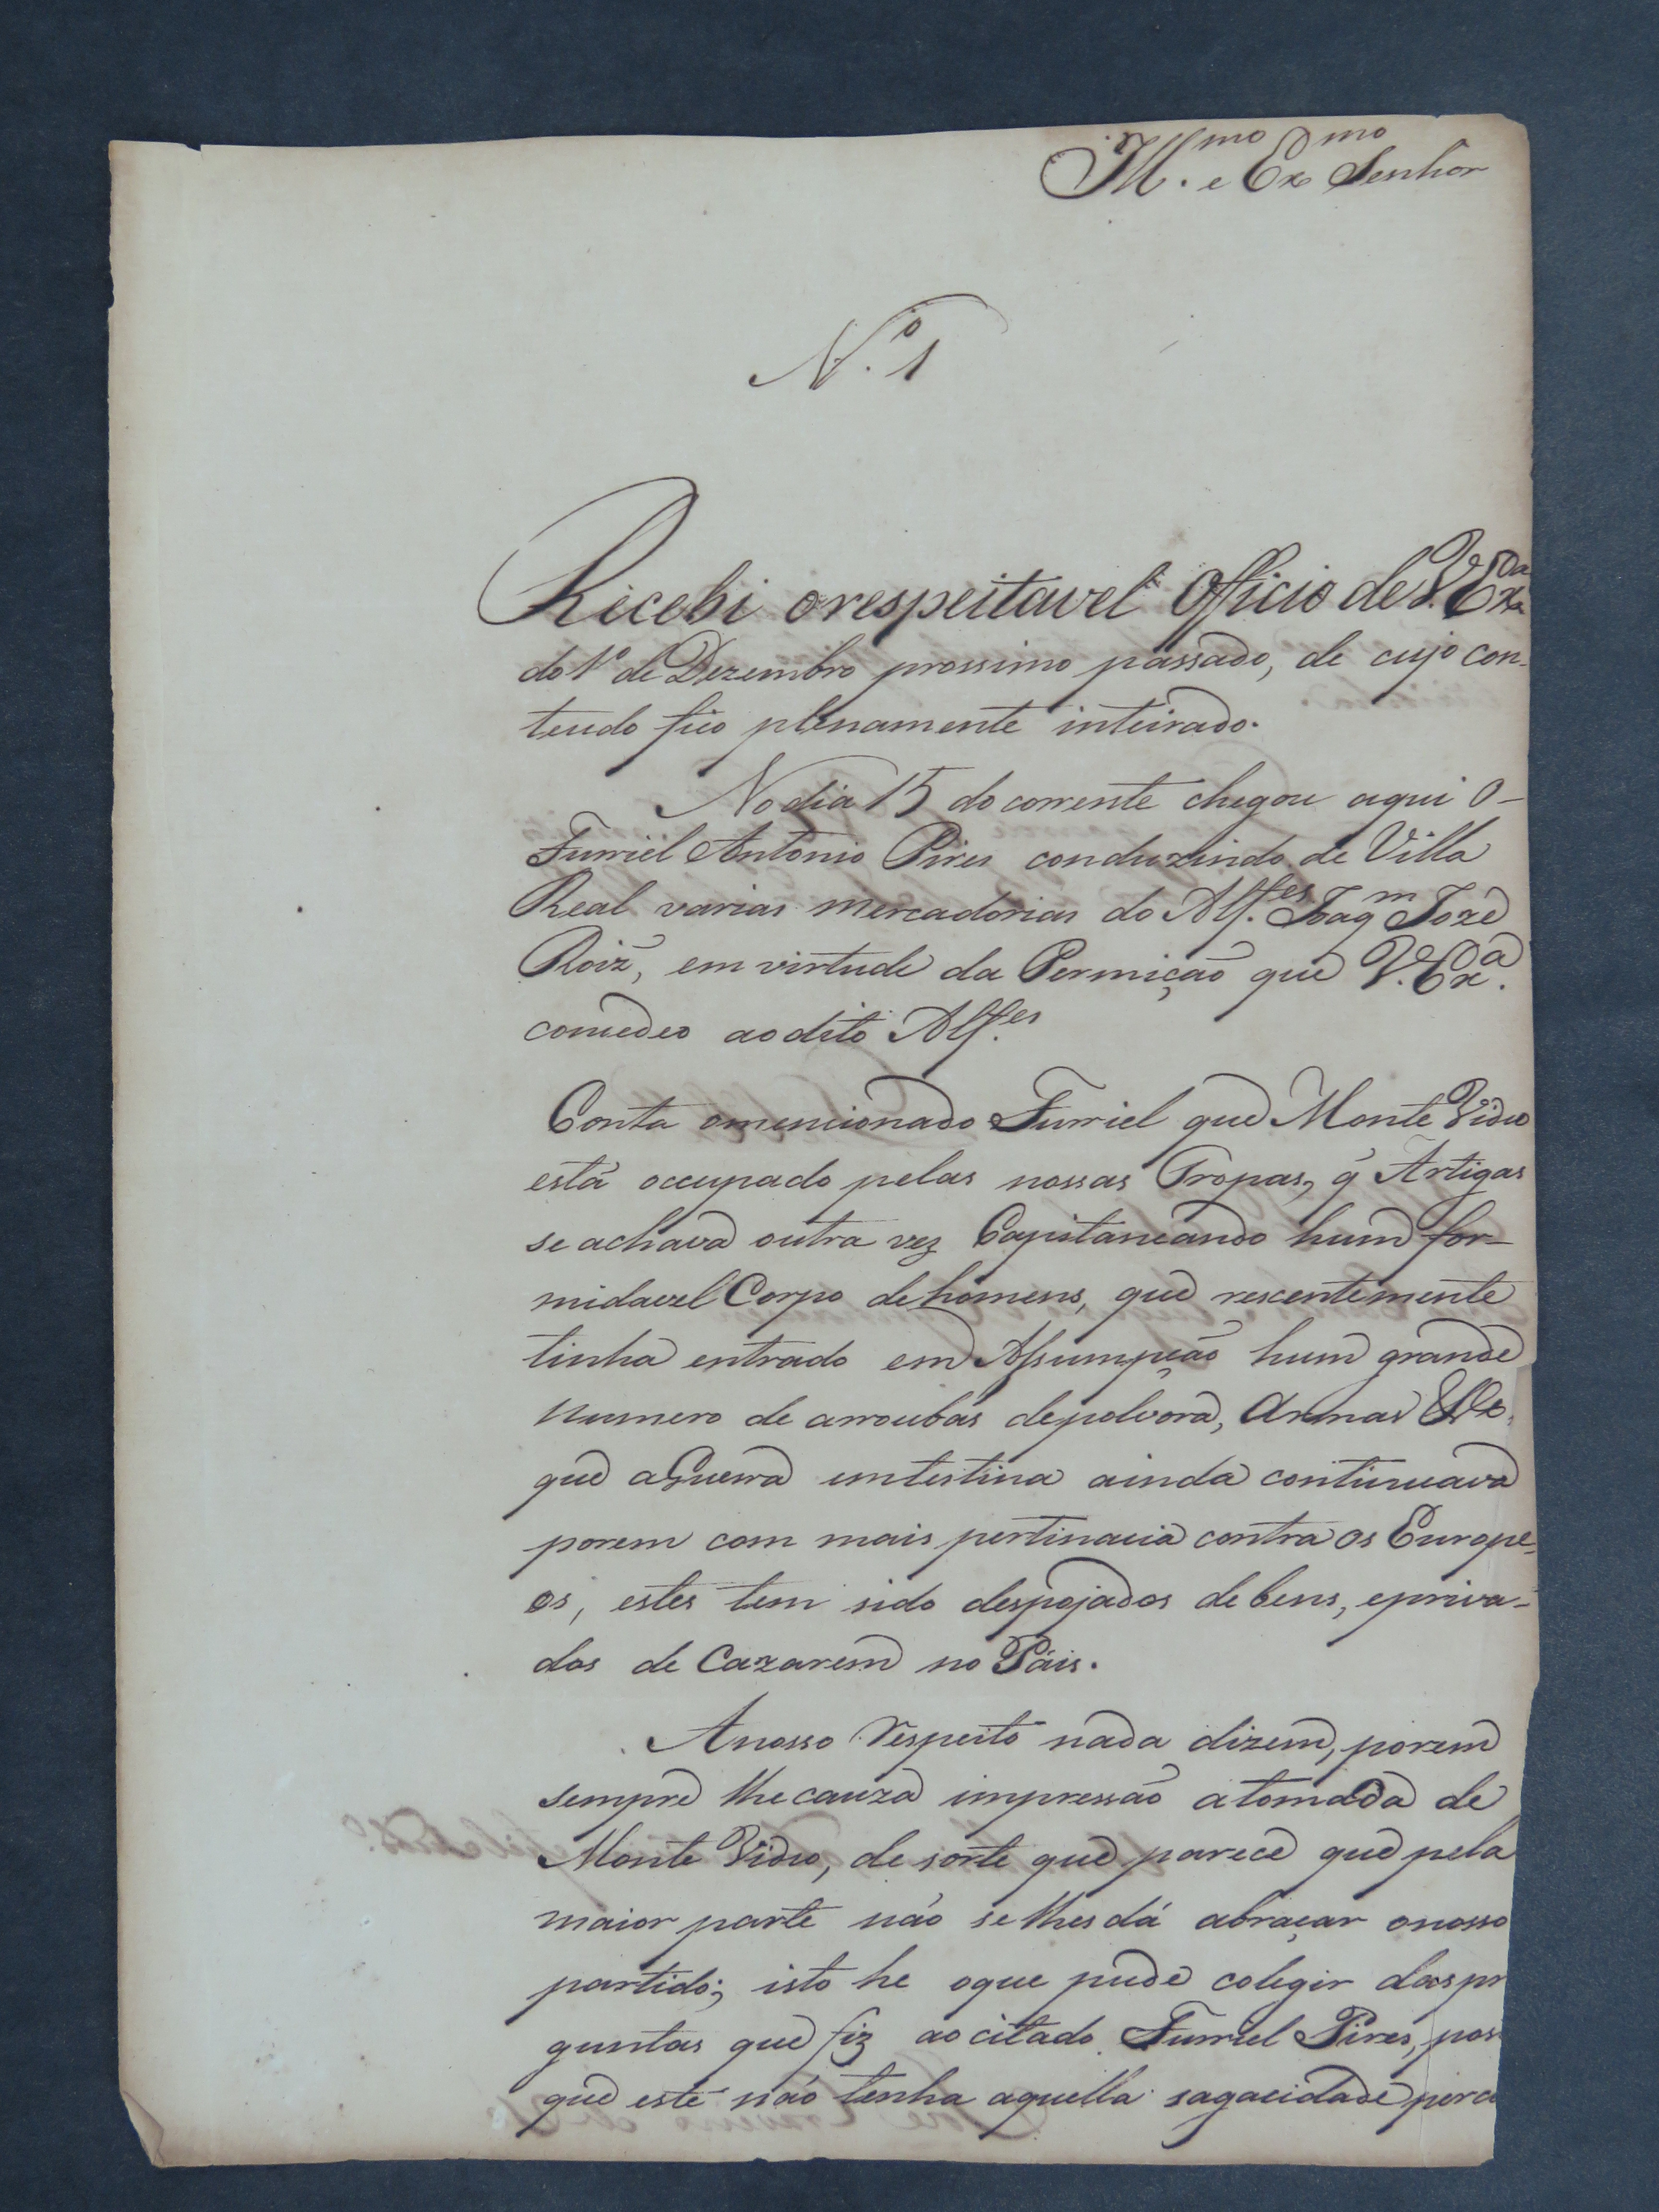 Ill.mo e Ex.mo Senhor
N.o 1
Recebi o respeitavel Officio de V. Ex.a
do 1o de Dezembro prossimo passado, de cujo con-
teudo fico plenamente inteirado.
No dia 15 do corrente chegou aqui o
Furriel Antonio Pires conduzindo de Villa
Real varias mercadorias do Alf.es Joaqm Jozé
Roiz, em virtude da Permição que V. Ex.a
concedeo ao dito Alf.es
Conta o mencionado Furriel que Monte Vidio
está occupado pelas nossas Tropas, q̃ Artigas
se achava outra vez Capitaneando hum for-
midavel Corpo de homens, que rescentemente
tinha entrado em Assumpção hum grande
numero de arroubas de polvora, Armas &a
que a Guerra intestina ainda continuava
porem com mais pertinacia contra os Europe-
os, estes tem sido despojados de bens, e priva-
dos de Cazarem no Páis.
A nosso respeito nada dizem, porem
sempre lhe cauza impressão a tomada de
Monte Vidio, de sorte que parece que pela
maior parte não se lhes dá abraçar o nosso
partido; isto he o que pude colegir das pr
guntas que fiz ao citado Furriel Pires, pos
que este não tenha aquella sagacidade perc